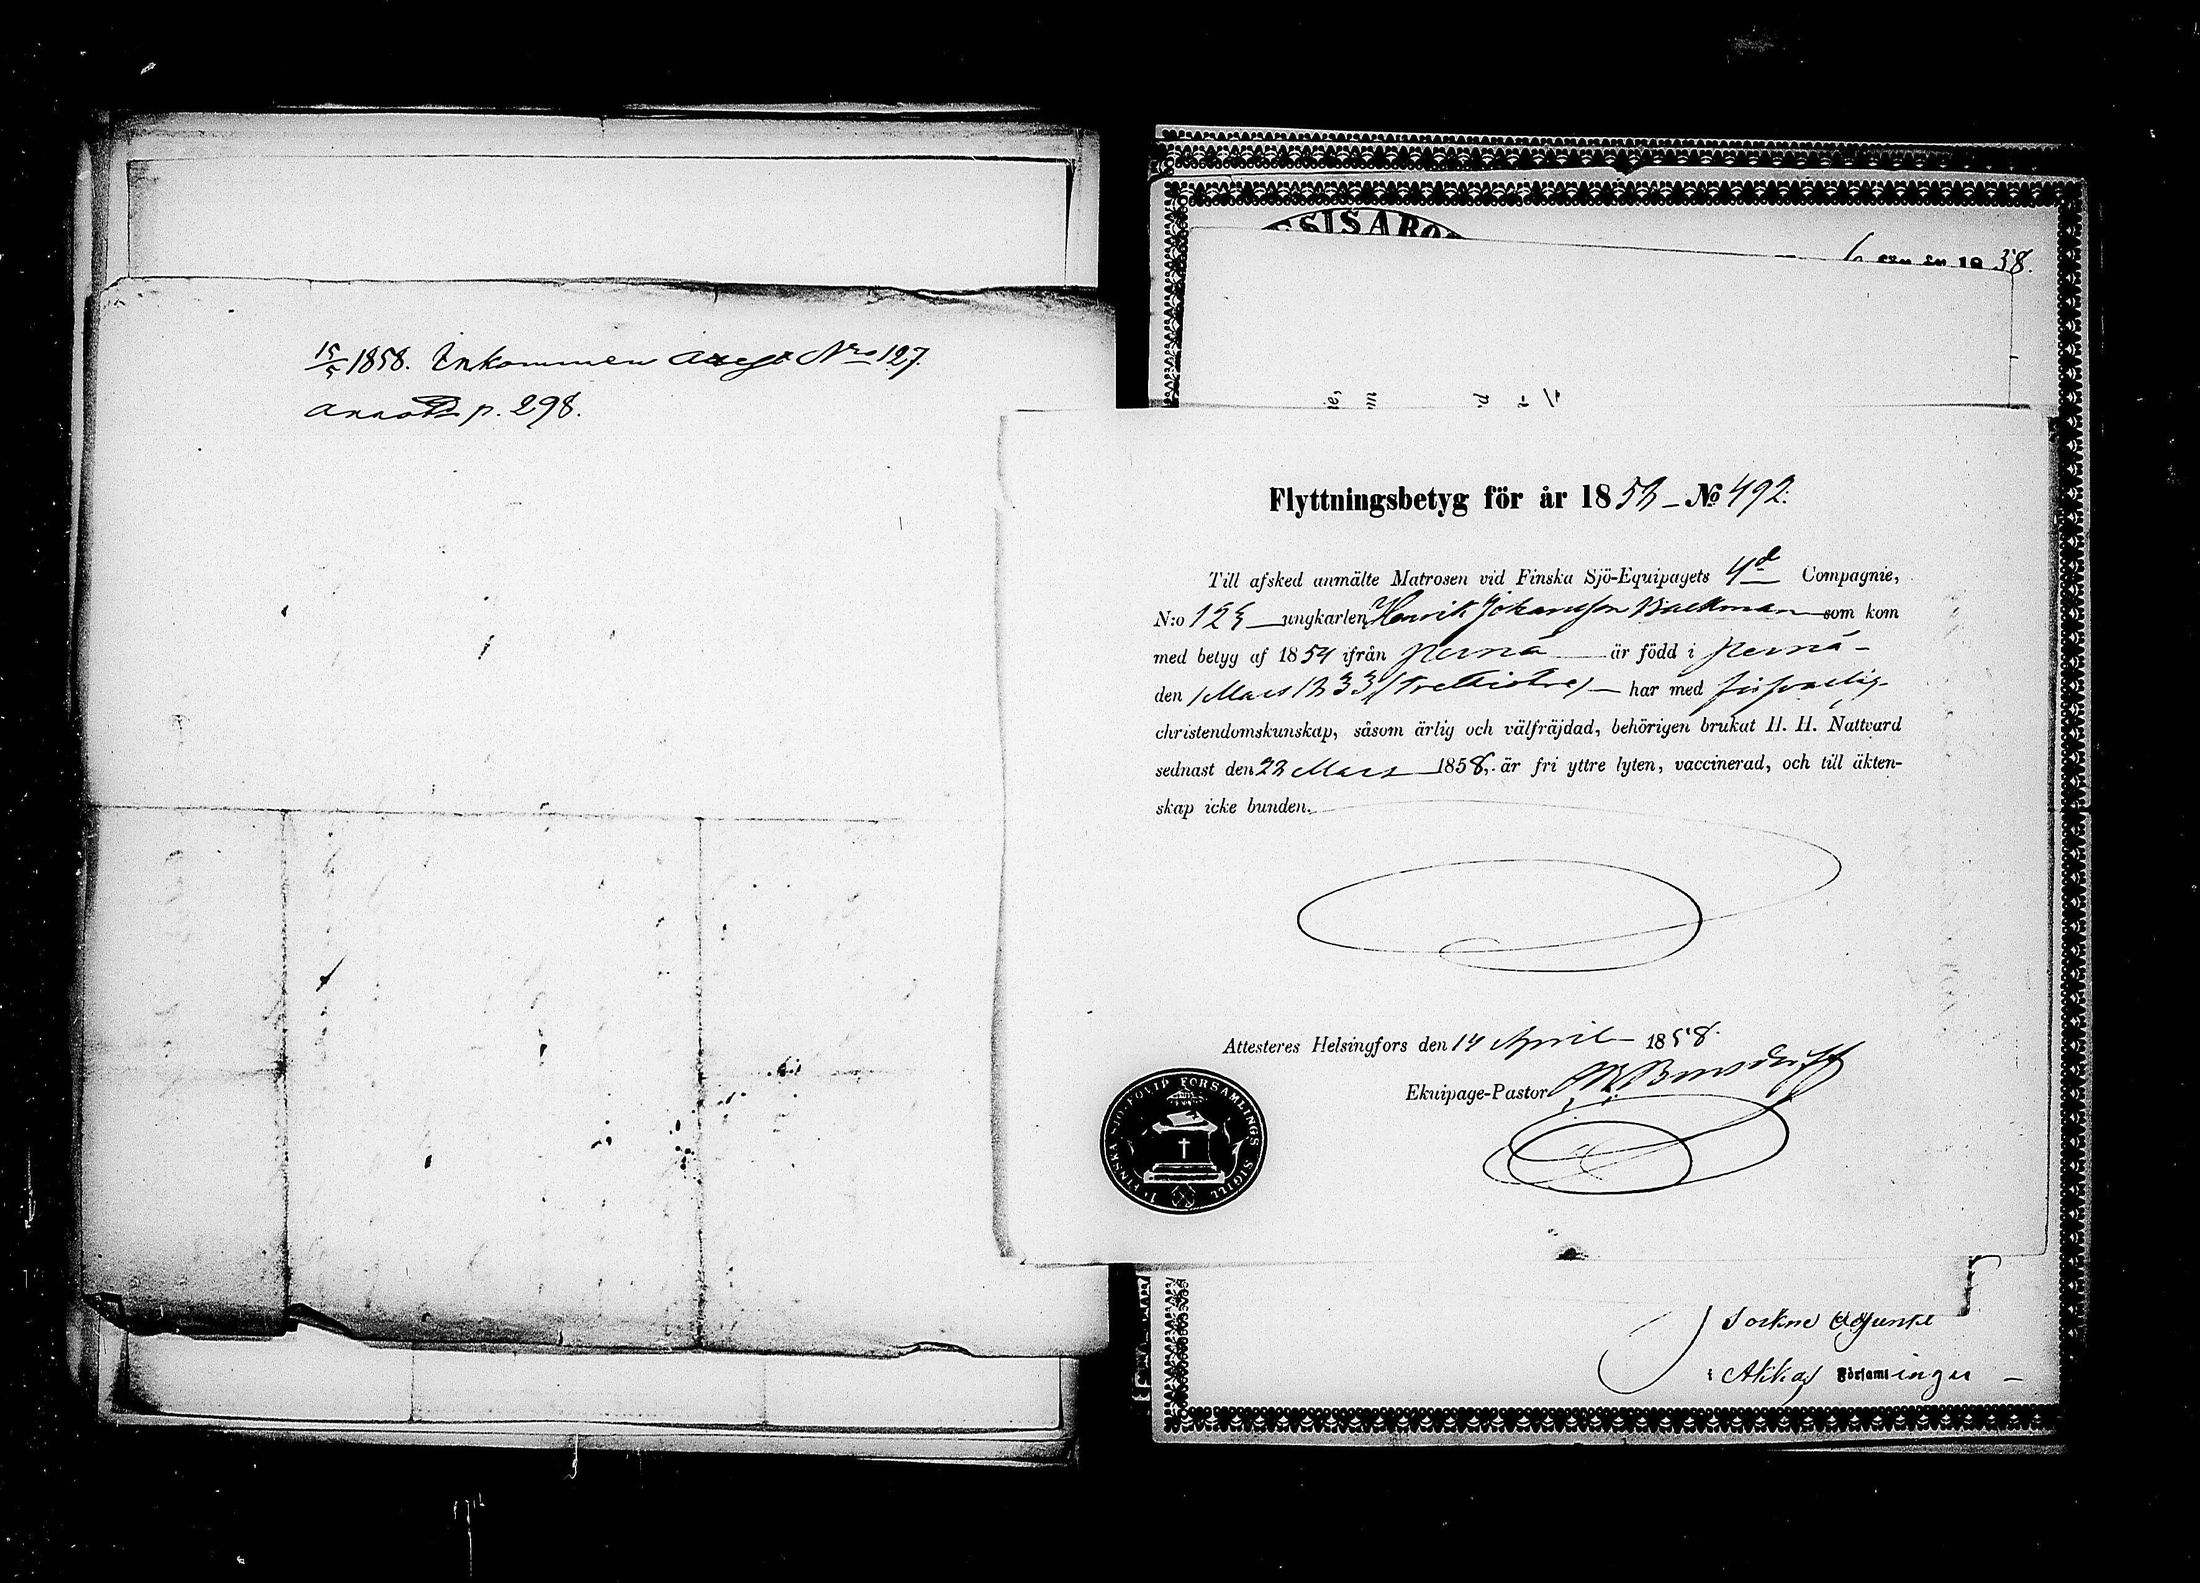 15/5 1858. Inkommen Nro 127.
p. 298.
SISARO
för år 1858.
Flyttningsbetyg för år 1858 – No 492.
Till afsked anmälte Matrosen vid Finska Sjö-Equipagets 4d Compagnie,
N:o 123 ungkarlen Henrik Johansson Backman som kom
med betyg af 1854 ifrån Pernå är född i Pernå –
den 1 Mars 1833 (trettiotre) – har med försvarlig
christendomskunskap, såsom ärlig och välfräjdad, behörigen brukat H. H. Nattvard
sednast den 22 Mars 1858, är fri yttre lyten, vaccinerad, och till äkten-
skap icke bunden.
Attesteres Helsingfors den 14 April 1858.
Ekuipage-Pastor
1a FINSKA SJÖ-EQVIP. FÖRSAMLINGS SIGILL
Sockne Adjunkt
i Akkas Församlingen –